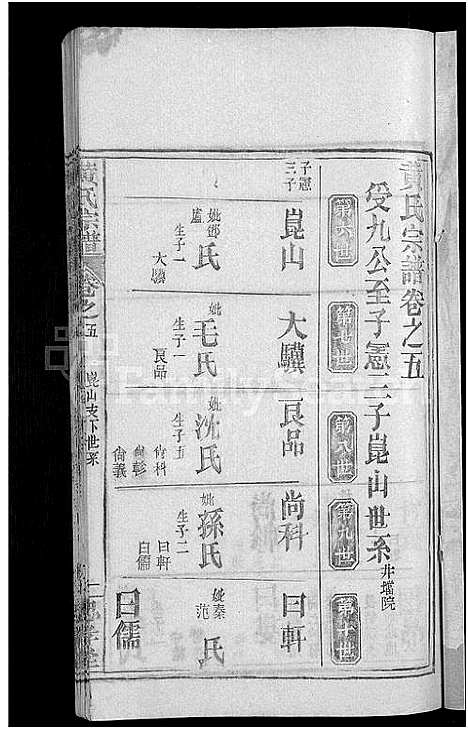 黃氏宗譜卷之五
受九公至子憲三子崑山世系井壋院
第六世
第七世
第八世
第九世
第十世
子憲三子
崑山
妣鄧盧氏
生子一
大驥
大驥
妣毛氏
生子一
良品
良品
妣沈氏
生子五
尚科
尚彭
尚義
尚科
妣孫氏
生子二
曰軒
曰儒
曰軒
妣秦范氏
曰儒
黃氏宗譜
卷之五
崑山支下世系
一
FamilySearch